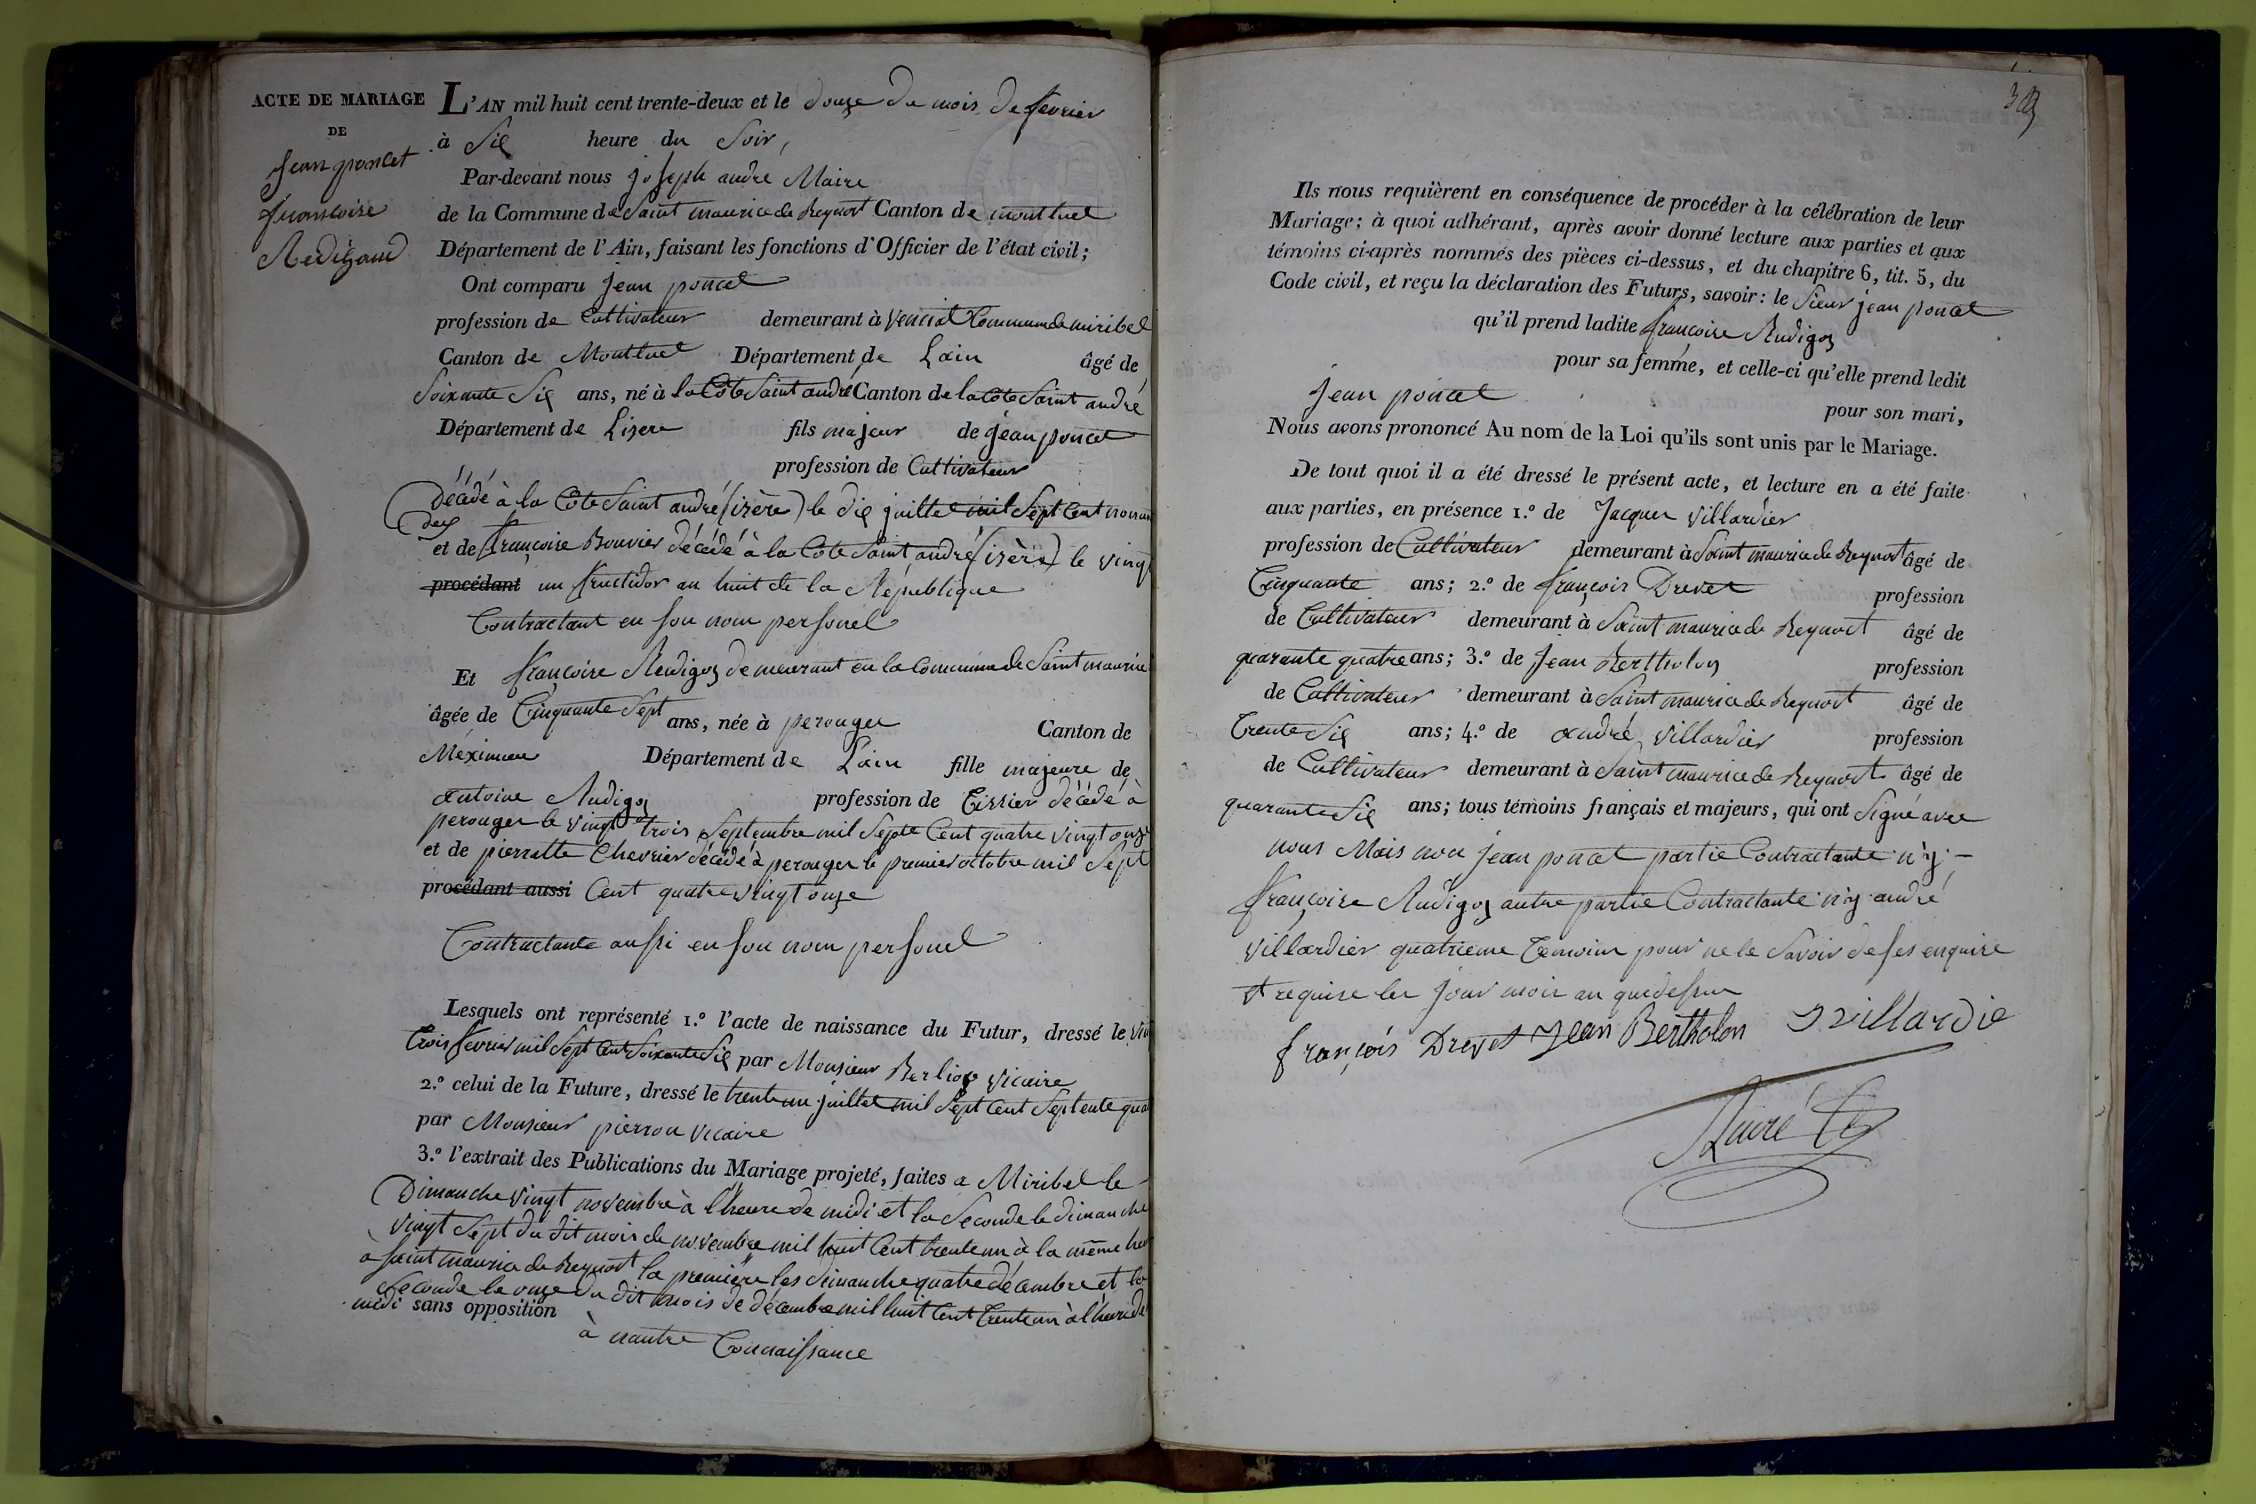 ACTE DE MARIAGE
DE
Jean poncet
francoise
Rudigoz
L'AN mil huit cent trente-deux et le douze du mois de fevrier
à Six heure du Soir,
Par-devant nous joseph andré Maire
de la Commune de Saint maurice de Beynost Canton de montluel
Département de l'Ain, faisant les fonctions d'Officier de l'état civil;
Ont comparu Jean poncet
profession de Cultivateur demeurant à Commune de miribel
Canton de Montluel Département de Lain âgé de
Soixante Six ans, né à la Côte Saint andré Canton de la Côte Saint andré
Département de Lizere fils majeur de jean poncet
profession de Cultivateur
décédé à la Côte Saint andré (izère) le dix juillet mil Sept Cent nonan
deux
et de françoise Bouvier décédé à la Côte Saint andré (izère) le vingt
procédant un fructidor an huit de la République
Contractant en son nom personel
Et françoise Rudigoz demeurant en la Commune de Saint maurice
âgée de Cinquante Sept ans, née à perouges Canton de
Meximieu Département de Lain fille majeure de
antoine Rudigoz profession de Tissier décédé à
perouges le vingt trois Septembre mil Septe Cent quatre vingt onze
et de pierrette Chevrier décédé à perouges le premier octobre mil Sept
procédant aussi Cent quatre vingt onze
Contractante aussi en son nom personel
Lesquels ont représenté 1.º l'acte de naissance du Futur, dressé le vin
trois fevrier mil Sept Cent Soixante Six par Monsieur Berlioz vicaire
2.º celui de la Future, dressé le trente un juillet mil Sept Cent Septente qua
par Monsieur pierron vicaire
3.º l'extrait des Publications du Mariage projeté, faites a Miribel le
Dimanche vingt novembre à l'heure de midi et la Seconde le dimanche
vingt Sept du dit mois de novembre mil huit Cent trente un à la même heu
à Saint maurice de Beynost la première les dimanche quatre décembre et la
Seconde le onze du dit mois de décembre mil huit Cent Trente un à l'heure de
midi sans opposition
à nautre Connaissance
Ils nous requièrent en conséquence de procéder à la célébration de leur
Mariage; à quoi adhérant, après avoir donné lecture aux parties et aux
témoins ci-après nommés des pièces ci-dessus, et du chapitre 6, tit. 5, du
Code civil, et reçu la déclaration des Futurs, savoir: le Sieur jean poncet
qu'il prend ladite françoise Rudigoz
pour sa femme, et celle-ci qu'elle prend ledit
jean poncet pour son mari,
Nous avons prononcé Au nom de la Loi qu'ils sont unis par le Mariage.
De tout quoi il a été dressé le présent acte, et lecture en a été faite
aux parties, en présence 1.º de Jacques villardier
profession de Cultivateur demeurant à Saint maurice de Beynost âgé de
Cinquante ans; 2.º de françois Drevet profession
de Cultivateur demeurant à Saint maurice de Beynost âgé de
quarante quatre ans; 3.º de Jean Bertholon profession
de Cultivateur demeurant à Saint maurice de Beynost âgé de
Trente Six ans; 4.º de andré villardier profession
de Cultivateur demeurant à Saint maurice de Beynost âgé de
quarante Six ans; tous témoins français et majeurs, qui ont Signé avec
nous Mais non jean poncet partie Contractante n'y
françoise Rudigoz autre partie Contractante n'y andré
villardier quatrieme Temoin pour ne le Savoir de ses enquire
et requise les jour mois an que dessus
françois Drevet Jean Bertholon J villardie